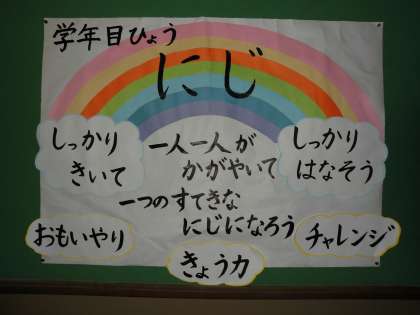 学年目ひょう
にじ
しっかり
きいて
一人一人が
かがやいて
一つのすてきな
にじになろう
しっかり
はなそう
おもいやり
きょう力
チャレンジ